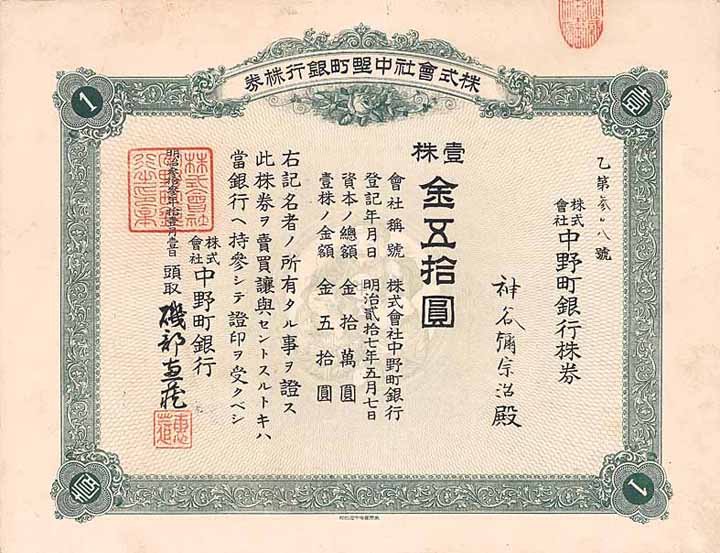 株式會社中埜町銀行株券
乙第参〇八號
株式會社中野町銀行株券
神谷彌宗治殿
壹株
金五拾圓
會社稱號 株式會社中野町銀行
登記年月日 明治貳拾七年五月七日
資本ノ總額 金拾萬圓
壹株ノ金額 金五拾圓
右記名者ノ所有タル事ヲ證ス
此株券ヲ賣買讓與セントスルトキハ
當銀行ヘ持參シテ證印ヲ受クベシ
株式會社中野町銀行
頭取 磯部
1
壹
壹
1